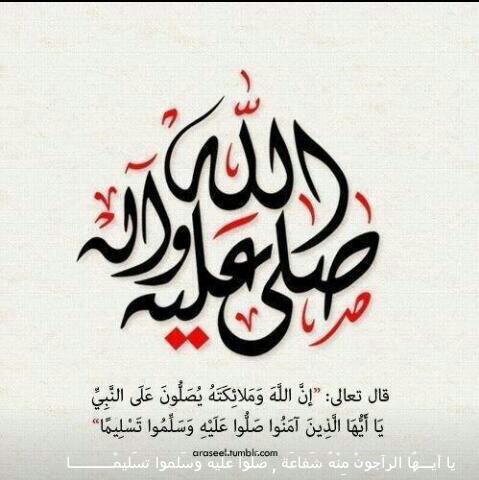 صلى الله عليه وآله
قال تعالى: "إنَّ اللَّهَ وَمَلائِكَتَهُ يُصَلُّونَ عَلَى النَّبِيِّ
يَا أَيُّهَا الَّذِينَ آمَنُوا صَلُّوا عَلَيْهِ وَسَلِّمُوا تَسْلِيمًا"
araseel.tumblr.com
يا أيــها الراجون مِنْهُ شفاعَة , صلوا عليه وسلموا تسليمْــــــا